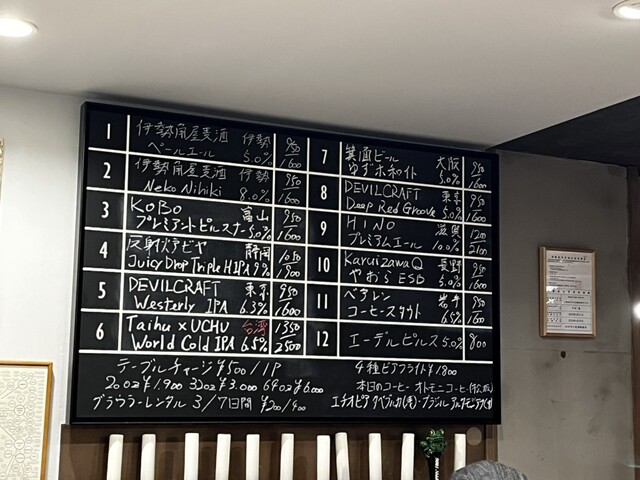 1 伊勢角屋麦酒 伊勢 950
ペールエール 5.0% 1600
2 伊勢角屋麦酒 伊勢 950
Neko Nihiki 8.0% 1600
3 KOBO 富山 950
プレミアントピルスナー 5.0% 1600
4 反射炉ビヤ 静岡 1050
Juicy Drop Triple HIPA 9% 1900
5 DEVILCRAFT 東京 950
Westerly IPA 6.3% 1600
6 Taihu × UCHU 台湾 1350
World Cold IPA 6.5% 2500
7 箕面ビール 大阪 950
ゆずホワイト 5.0% 1600
8 DEVILCRAFT 東京 950
Deep Red Groove 5.0% 1600
9 HINO 滋賀 1200
プレミアムエール 10.0% 2100
10 Karuizawa 長野 950
やわら ESB 5.0% 1600
11 ベアレン 岩手 950
コーヒースタウト 6.5% 1600
12 エーデルピルス 5.0% 800
テーブルチャージ ¥500/1P
20oz ¥1,900 32oz ¥3,000 64oz ¥6,000
グラウラーレンタル 3/7日間 ¥200/400
4種ビアフライト ¥1800
本日のコーヒー オトモニコーヒー
エチオピア ブラジル